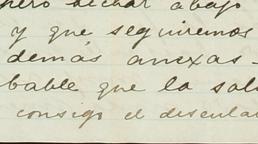 pero dechar abajo
y que seguiremos
demás anexas -
bable que la sal
consigo el desenla